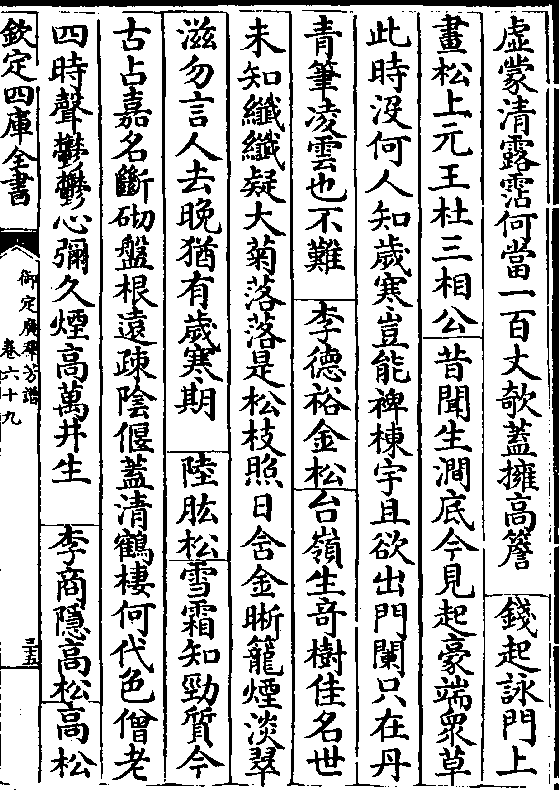 虛蒙清露霑何當一百丈欹蓋擁高簷　錢起詠門上
畫松上元王杜三相公昔聞生澗底今見起豪端眾草
此時沒何人知歲寒豈能裨棟宇且欲出門闌只在丹
青筆凌雲也不難　李德裕金松台嶺生奇樹佳名世
未知纖纖疑大菊落落是松枝照日含金晰籠煙淡翠
滋勿言人去晚猶有歲寒期　陸肱松雪霜知勁質今
古占嘉名斷砌盤根遠疎陰偃蓋清鶴棲何代色僧老
四時聲鬱鬱心彌久煙高萬井生　李商隱高松高松
欽定四庫全書
御定廣羣芳譜
卷六十九
三五